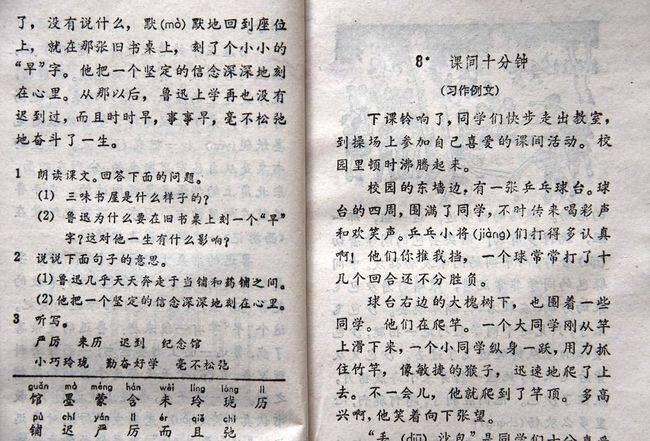 了，没有说什么，默(mò)默地回到座位
上，就在那张旧书桌上，刻了个小小的
“早”字。他把一个坚定的信念深深地刻
在心里。从那以后，鲁迅上学再也没有
迟到过，而且时时早，事事早，毫不松弛
地奋斗了一生。
1 朗读课文。回答下面的问题。
(1) 三味书屋是什么样子的？
(2) 鲁迅为什么要在旧书桌上刻一个“早”
字？这对他一生有什么影响？
2 说说下面句子的意思。
(1)鲁迅几乎天天奔走于当铺和药铺之间。
(2)他把一个坚定的信念深深地刻在心里。
3 听写。
严厉 来历 迟到 纪念馆
小巧玲珑 勤奋好学 毫不松弛
guǎn mò méng hán wèi líng lóng lì
馆 墨 蒙 含 未 玲 珑 历
pù chí yán lì ér qiě chí
铺 迟 严 厉 而 且 弛
8* 课间十分钟
(习作例文)
下课铃响了，同学们快步走出教室，
到操场上参加自己喜爱的课间活动。校
园里顿时沸腾起来。
校园的东墙边，有一张乒乓球台。球
台的四周，围满了同学，不时传来喝彩声
和欢笑声。乒乓小将(jiàng)们打得多认真
啊！他们你推我挡，一个球常常打了十
几个回合还不分胜负。
球台右边的大槐树下，也围着一些
同学。他们在爬竿。一个大同学刚从竿
上滑下来，一个小同学纵身一跃，用力抓
住竹竿，像敏捷的猴子，迅速地爬了上
去。不一会儿，他就爬到了竿顶。多高
兴啊，他笑着向下张望。
“丢(diū)沙包”